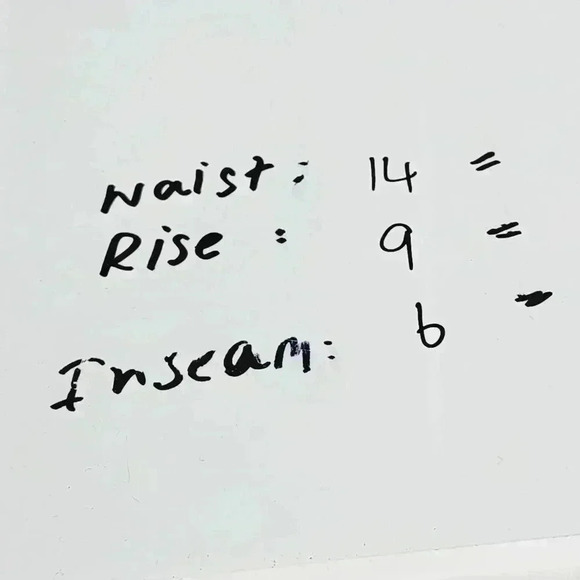 Waist: 14 =
Rise : 9 =
Inseam: 6 =